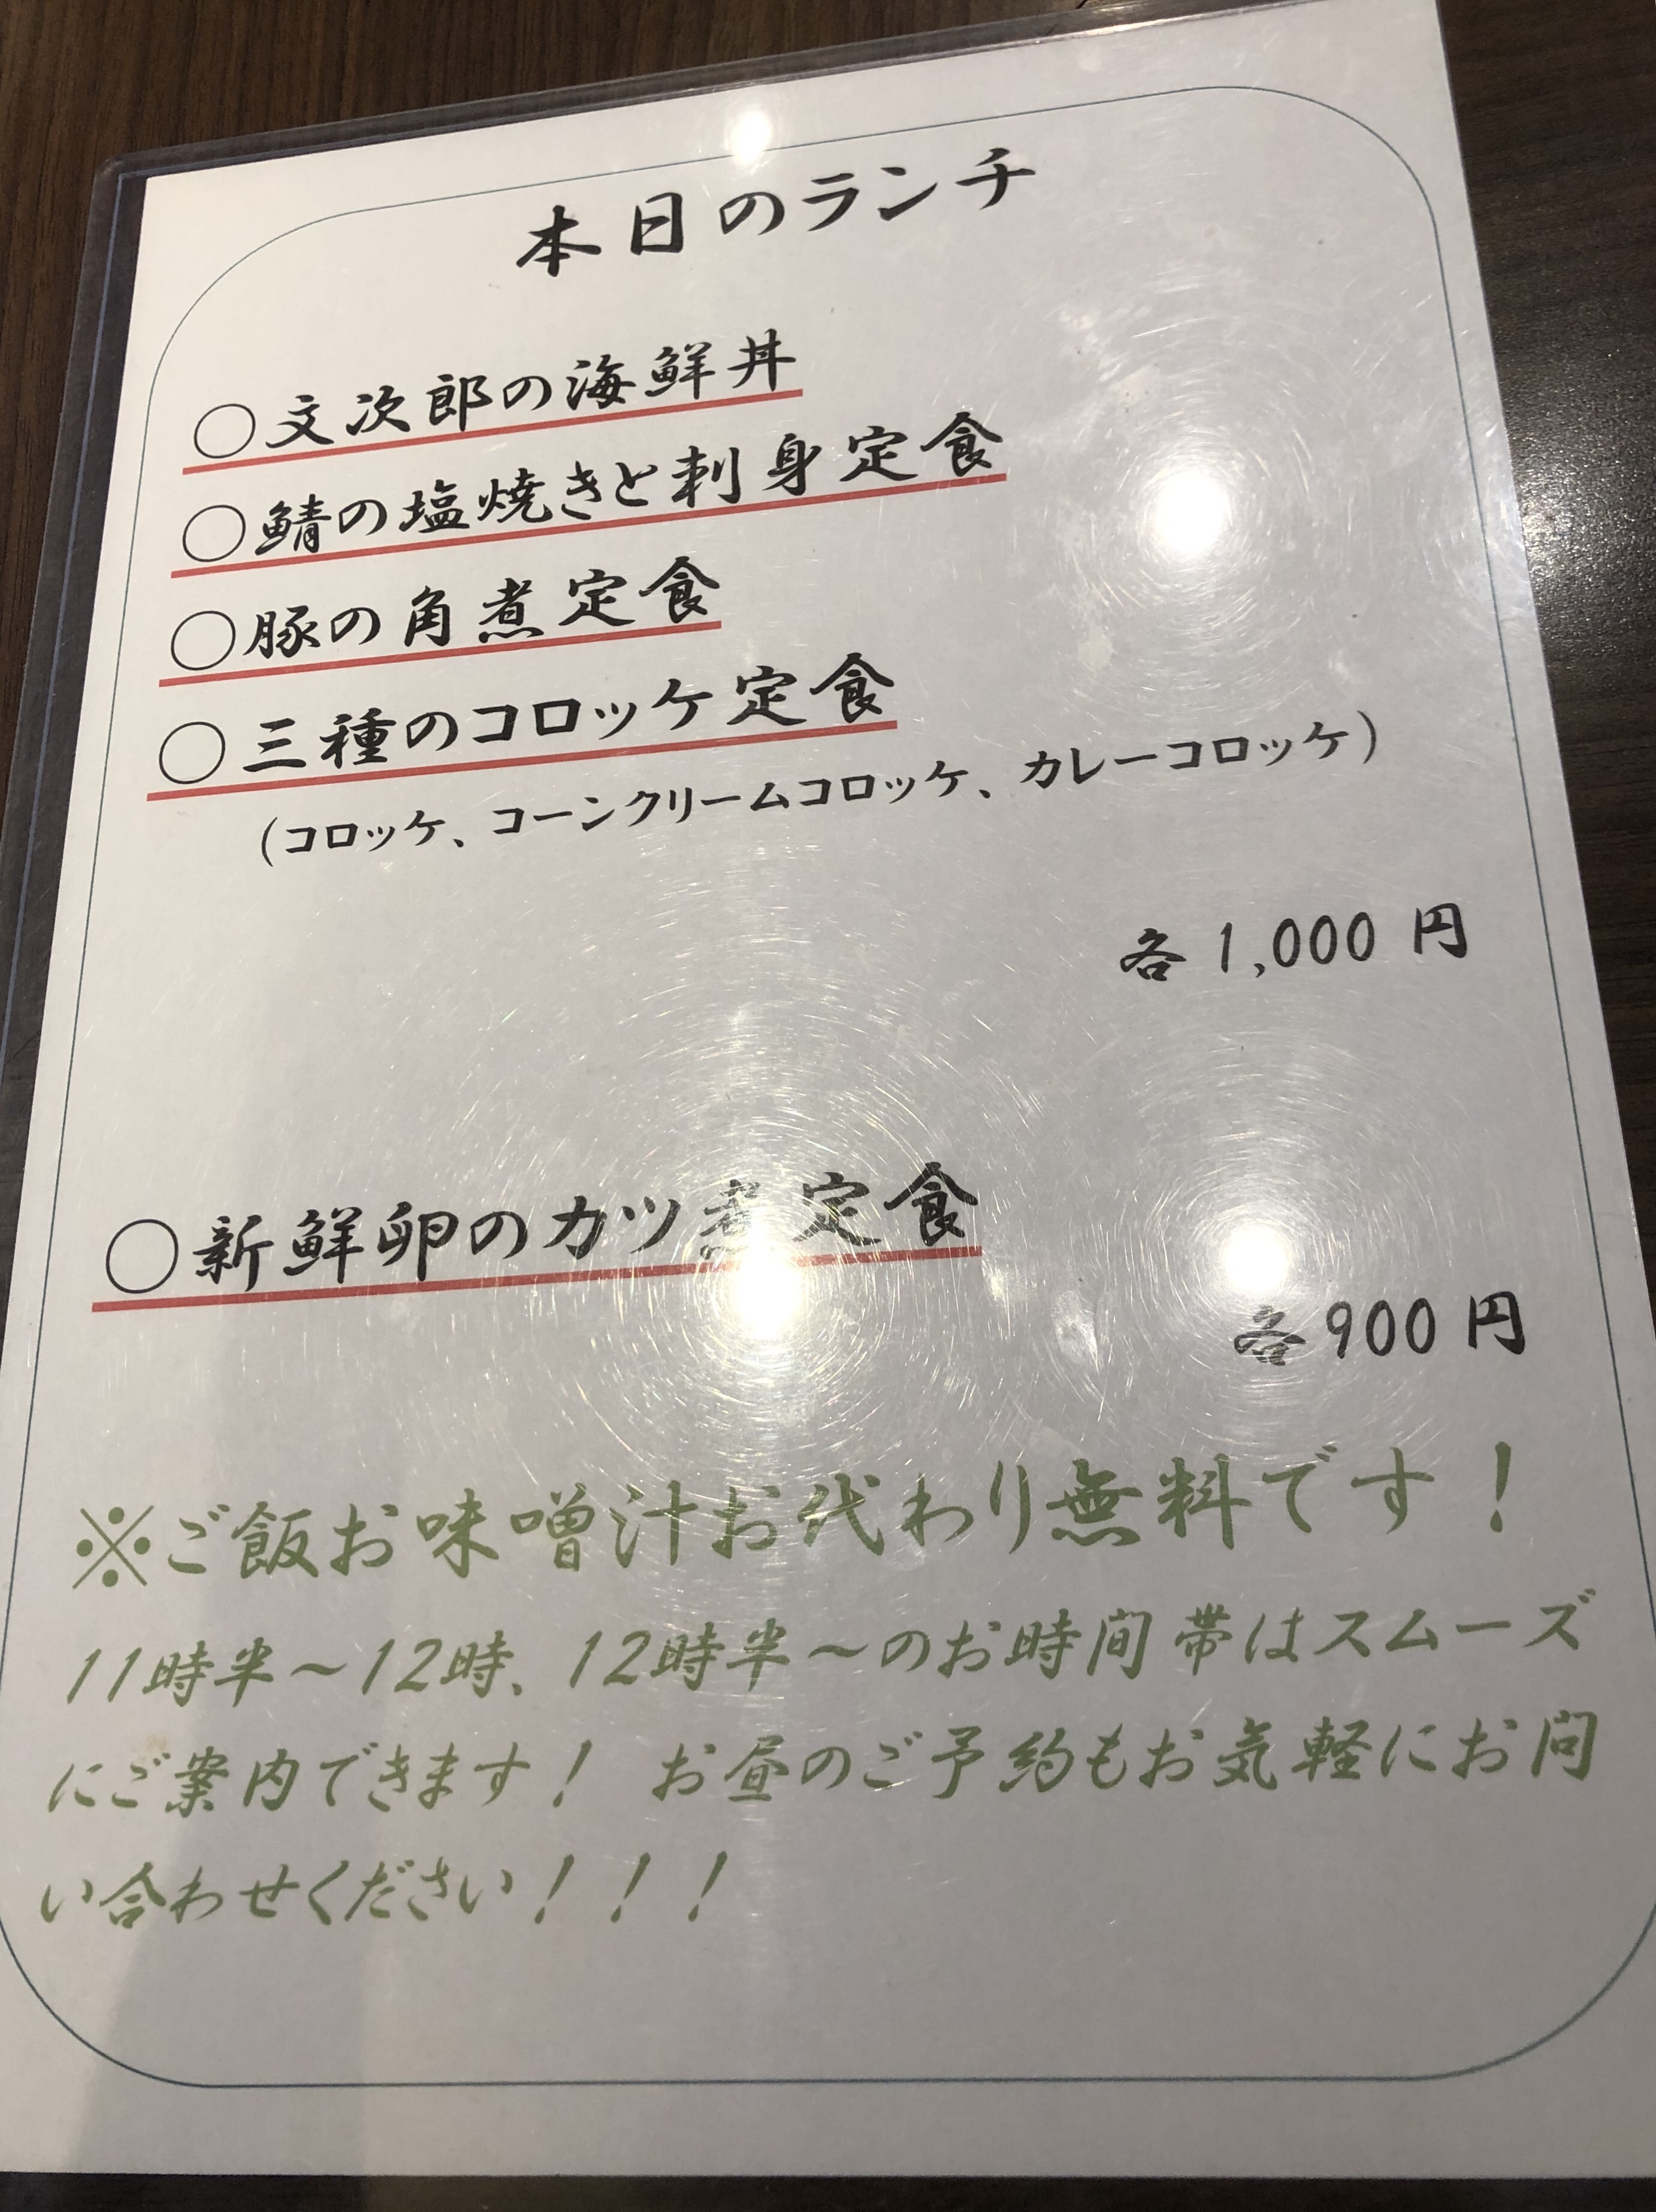 本日のランチ
○文次郎の海鮮丼
○鯖の塩焼きと刺身定食
○豚の角煮定食
○三種のコロッケ定食
(コロッケ、コーンクリームコロッケ、カレーコロッケ)
各1,000円
○新鮮卵のカツ煮定食
各900円
※ご飯お味噌汁お代わり無料です！
11時半～12時、12時半～のお時間帯はスムーズ
にご案内できます！ お昼のご予約もお気軽にお問
い合わせください！！！